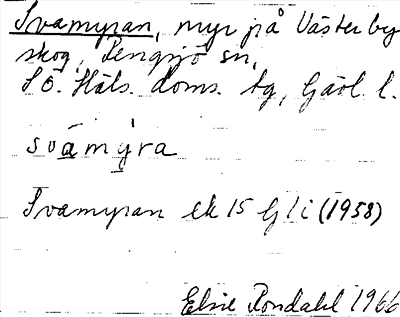 Svamyran, myr på Västerby
skog, Rengsjö sn,
SÖ. Häls. doms. tg, Gävl. l.
svämyra
Svamyran ek 15 G l i (1958)
Elsie Rondahl 1966